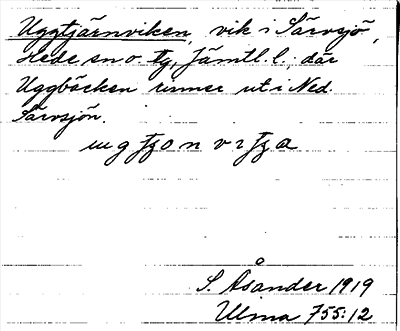 Uggtjärnviken, vik i Särvsjö,
Hede sn o. tg, Jämtl. l., där
Uggbäcken rinner ut i Ned.
Särvsjön.
S. Åsander 1919
Ulma 755:12